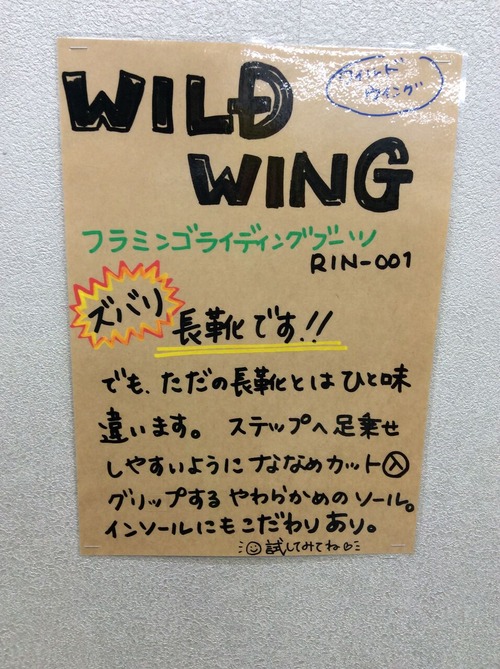 WILD
ワイルド
ウイング
WING
フラミンゴライディングブーツ
RIN-001
ズバリ
長靴です!!
でも、ただの長靴とはひと味
違います。 ステップへ足乗せ
しやすいようにななめカット入
グリップするやわらかめのソール。
インソールにもこだわりあり。
試してみてね